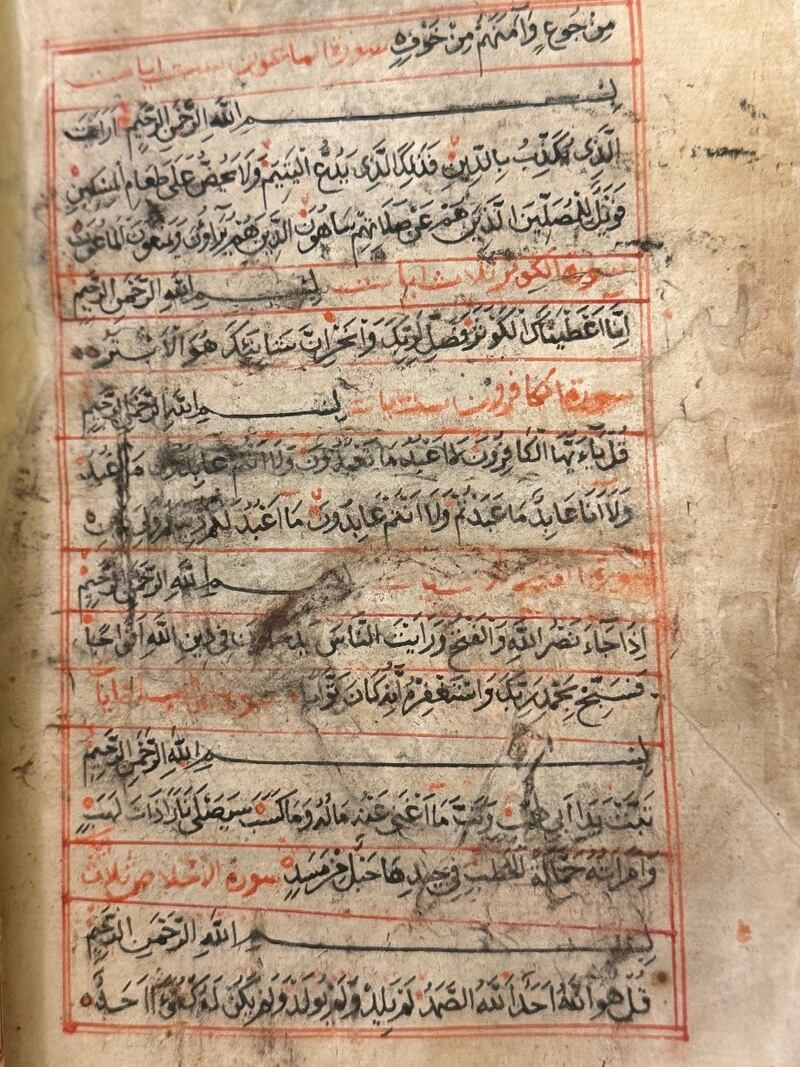 مِنْ جُوعٍ وَآمَنَهُمْ مِنْ خَوْفٍ سورة الماعون ست ايات
بِسْمِ اللهِ الرَّحْمٰنِ الرَّحِيمِ اَرَاَيْتَ
الَّذِى يُكَذِّبُ بِالدِّينِ فَذٰلِكَ الَّذِى يَدُعُّ الْيَتِيمَ وَلَا يَحُضُّ عَلَى طَعَامِ الْمِسْكِينِ
فَوَيْلٌ لِلْمُصَلِّينَ الَّذِينَ هُمْ عَنْ صَلَاتِهِمْ سَاهُونَ الَّذِينَ هُمْ يُرَاؤُنَ وَيَمْنَعُونَ الْمَاعُونَ
سورة الكوثر ثلاث ايات بِسْمِ اللهِ الرَّحْمٰنِ الرَّحِيمِ
اِنَّا اَعْطَيْنَاكَ الْكَوْثَرَ فَصَلِّ لِرَبِّكَ وَانْحَرْ اِنَّ شَانِئَكَ هُوَ الْاَبْتَرُ
سورة الكافرون ست ايات بِسْمِ اللهِ الرَّحْمٰنِ الرَّحِيمِ
قُلْ يَاءَيُّهَا الْكَافِرُونَ لَا اَعْبُدُ مَا تَعْبُدُونَ وَلَا اَنْتُمْ عَابِدُونَ مَا اَعْبُدُ
وَلَا اَنَا عَابِدٌ مَا عَبَدْتُمْ وَلَا اَنْتُمْ عَابِدُونَ مَا اَعْبُدُ لَكُمْ دِينُكُمْ وَلِىَ دِينِ
سورة بِسْمِ اللهِ الرَّحْمٰنِ الرَّحِيمِ
اِذَا جَاءَ نَصْرُ اللهِ وَالْفَتْحُ وَرَاَيْتَ النَّاسَ يَدْخُلُونَ فِى دِينِ اللهِ اَفْوَاجًا
فَسَبِّحْ بِحَمْدِ رَبِّكَ وَاسْتَغْفِرْهُ اِنَّهُ كَانَ تَوَّابًا سورة
بِسْمِ اللهِ الرَّحْمٰنِ الرَّحِيمِ
تَبَّتْ يَدَا اَبِى لَهَبٍ وَتَبَّ مَا اَغْنَى عَنْهُ مَالُهُ وَمَا كَسَبَ سَيَصْلَى نَارًا ذَاتَ لَهَبٍ
وَامْرَاَتُهُ حَمَّالَةَ الْحَطَبِ فِى جِيدِهَا حَبْلٌ مِنْ مَسَدٍ سورة الاخلاص ثلاث
بِسْمِ اللهِ الرَّحْمٰنِ الرَّحِيمِ
قُلْ هُوَ اللهُ اَحَدٌ اَللهُ الصَّمَدُ لَمْ يَلِدْ وَلَمْ يُولَدْ وَلَمْ يَكُنْ لَهُ كُفُوًا اَحَدٌ